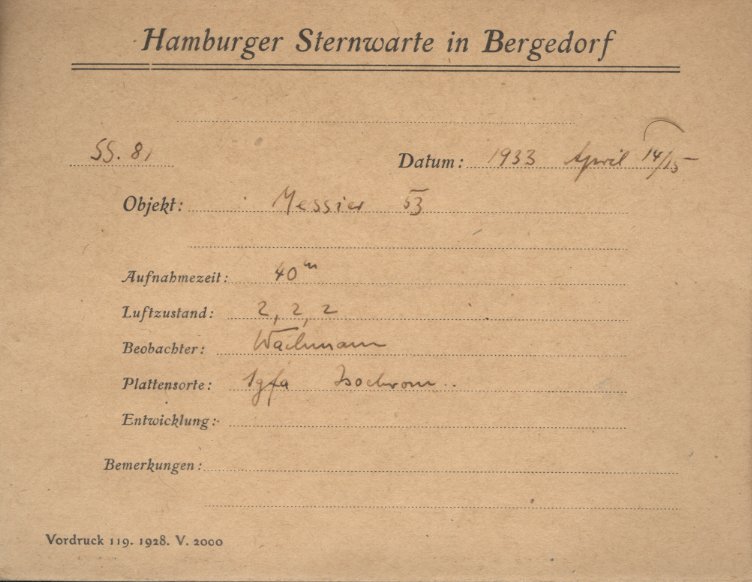 Hamburger Sternwarte in Bergedorf
SS. 81 Datum: 1933 April 14/15
Objekt: Messier 53
Aufnahmezeit: 40m
Luftzustand: 2, 2, 2
Beobachter: Wachmann
Plattensorte: Agfa Isochrom..
Entwicklung:
Bemerkungen:
Vordruck 119. 1928. V. 2000